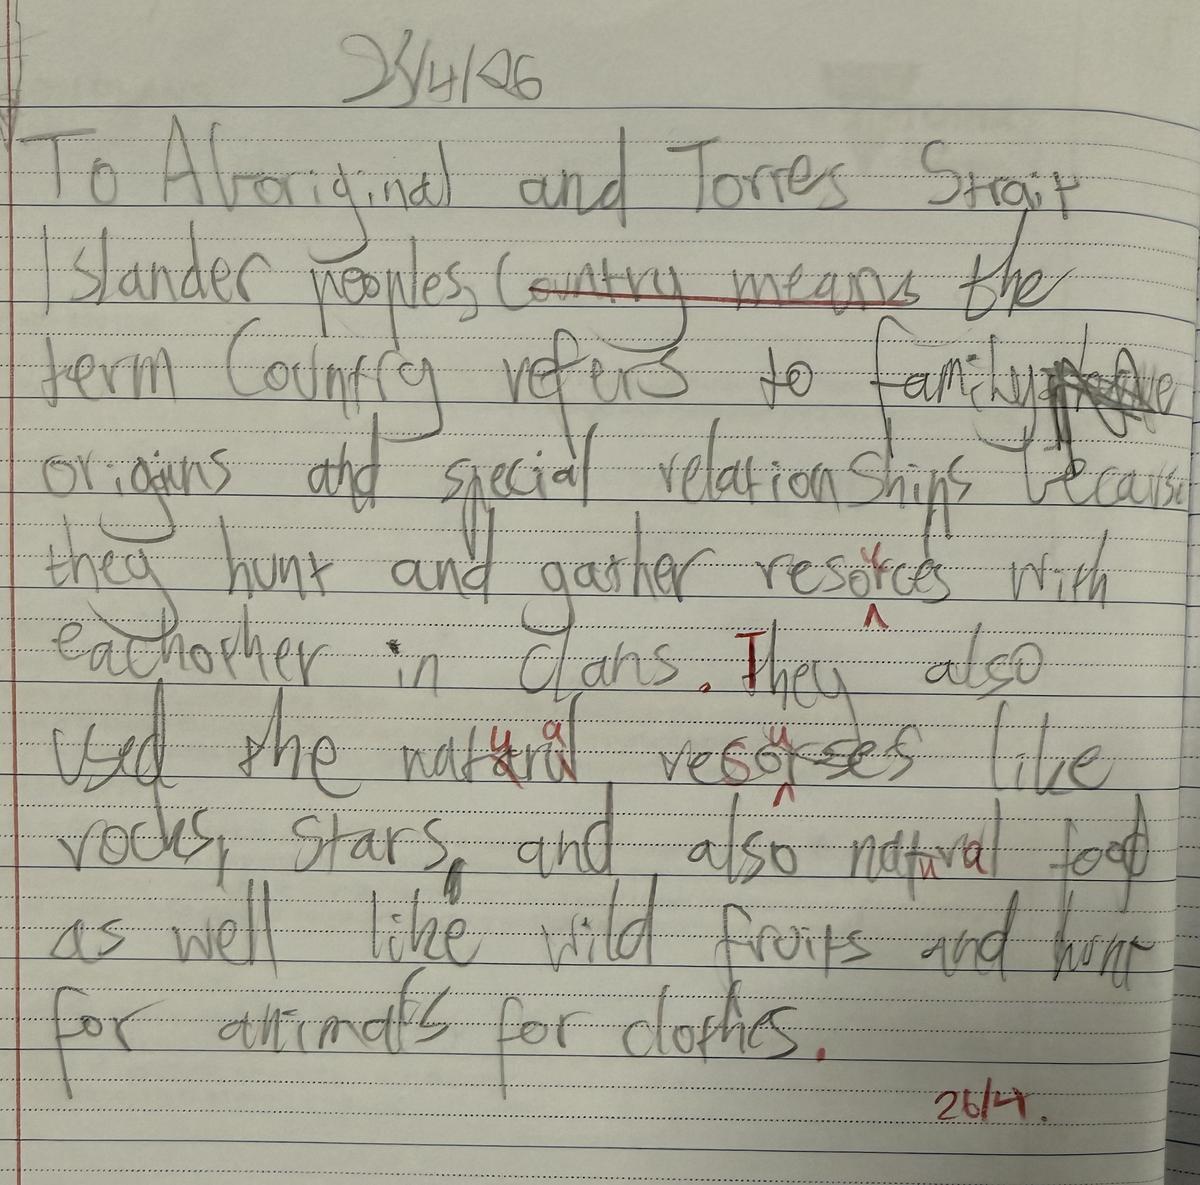 25/4/26
To Aboriginal and Torres Strait
Islander peoples, Country means the
term Country refers to family,
origins and special relationships because
they hunt and gather resources with
eachother in clans. They also
used the natural resourses like
rocks, stars, and also natural food
as well like wild fruits and hunt
for animals for clothes.
26/4.